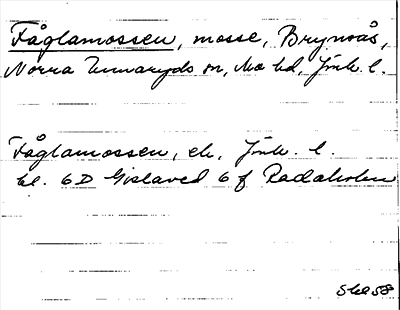 Fåglamossen, mosse, Brynoås,
Norra Unnaryds sn, Mo hd, Jönk. l.
Fåglamossen, ek, Jönk. l.
bl. 6D Gislaved 6 f Radaholm